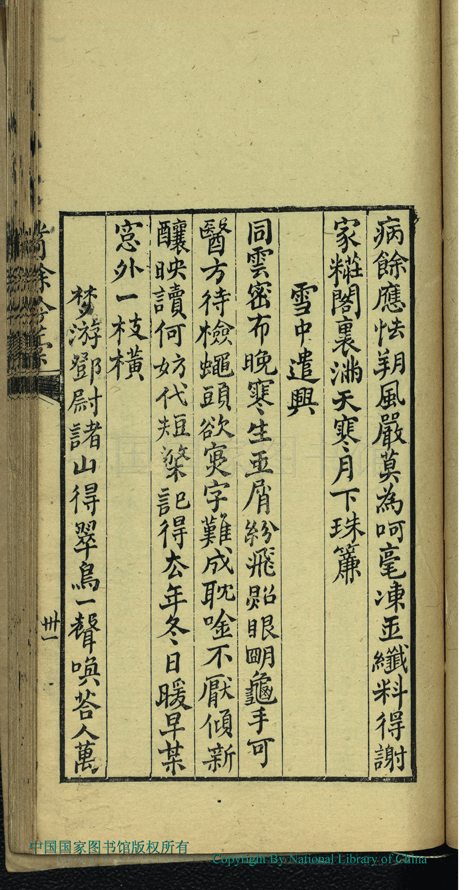 病餘應怯朔風嚴莫為呵毫凍玉纖料得謝
家糚閣裏滿天寒月下珠簾
雪中遣興
同雲密布晚寒生玉屑紛飛眩眼明龜手可
醫方待檢蠅頭欲寫字難成耽唫不厭傾新
釀映讀何妨代短檠記得去年冬日暖早某
窓外一枝橫
梦游鄧尉諸山得翠烏一聲喚苔人萬
卅一
中国国家图书馆版权所有
Copyright By National Library of China